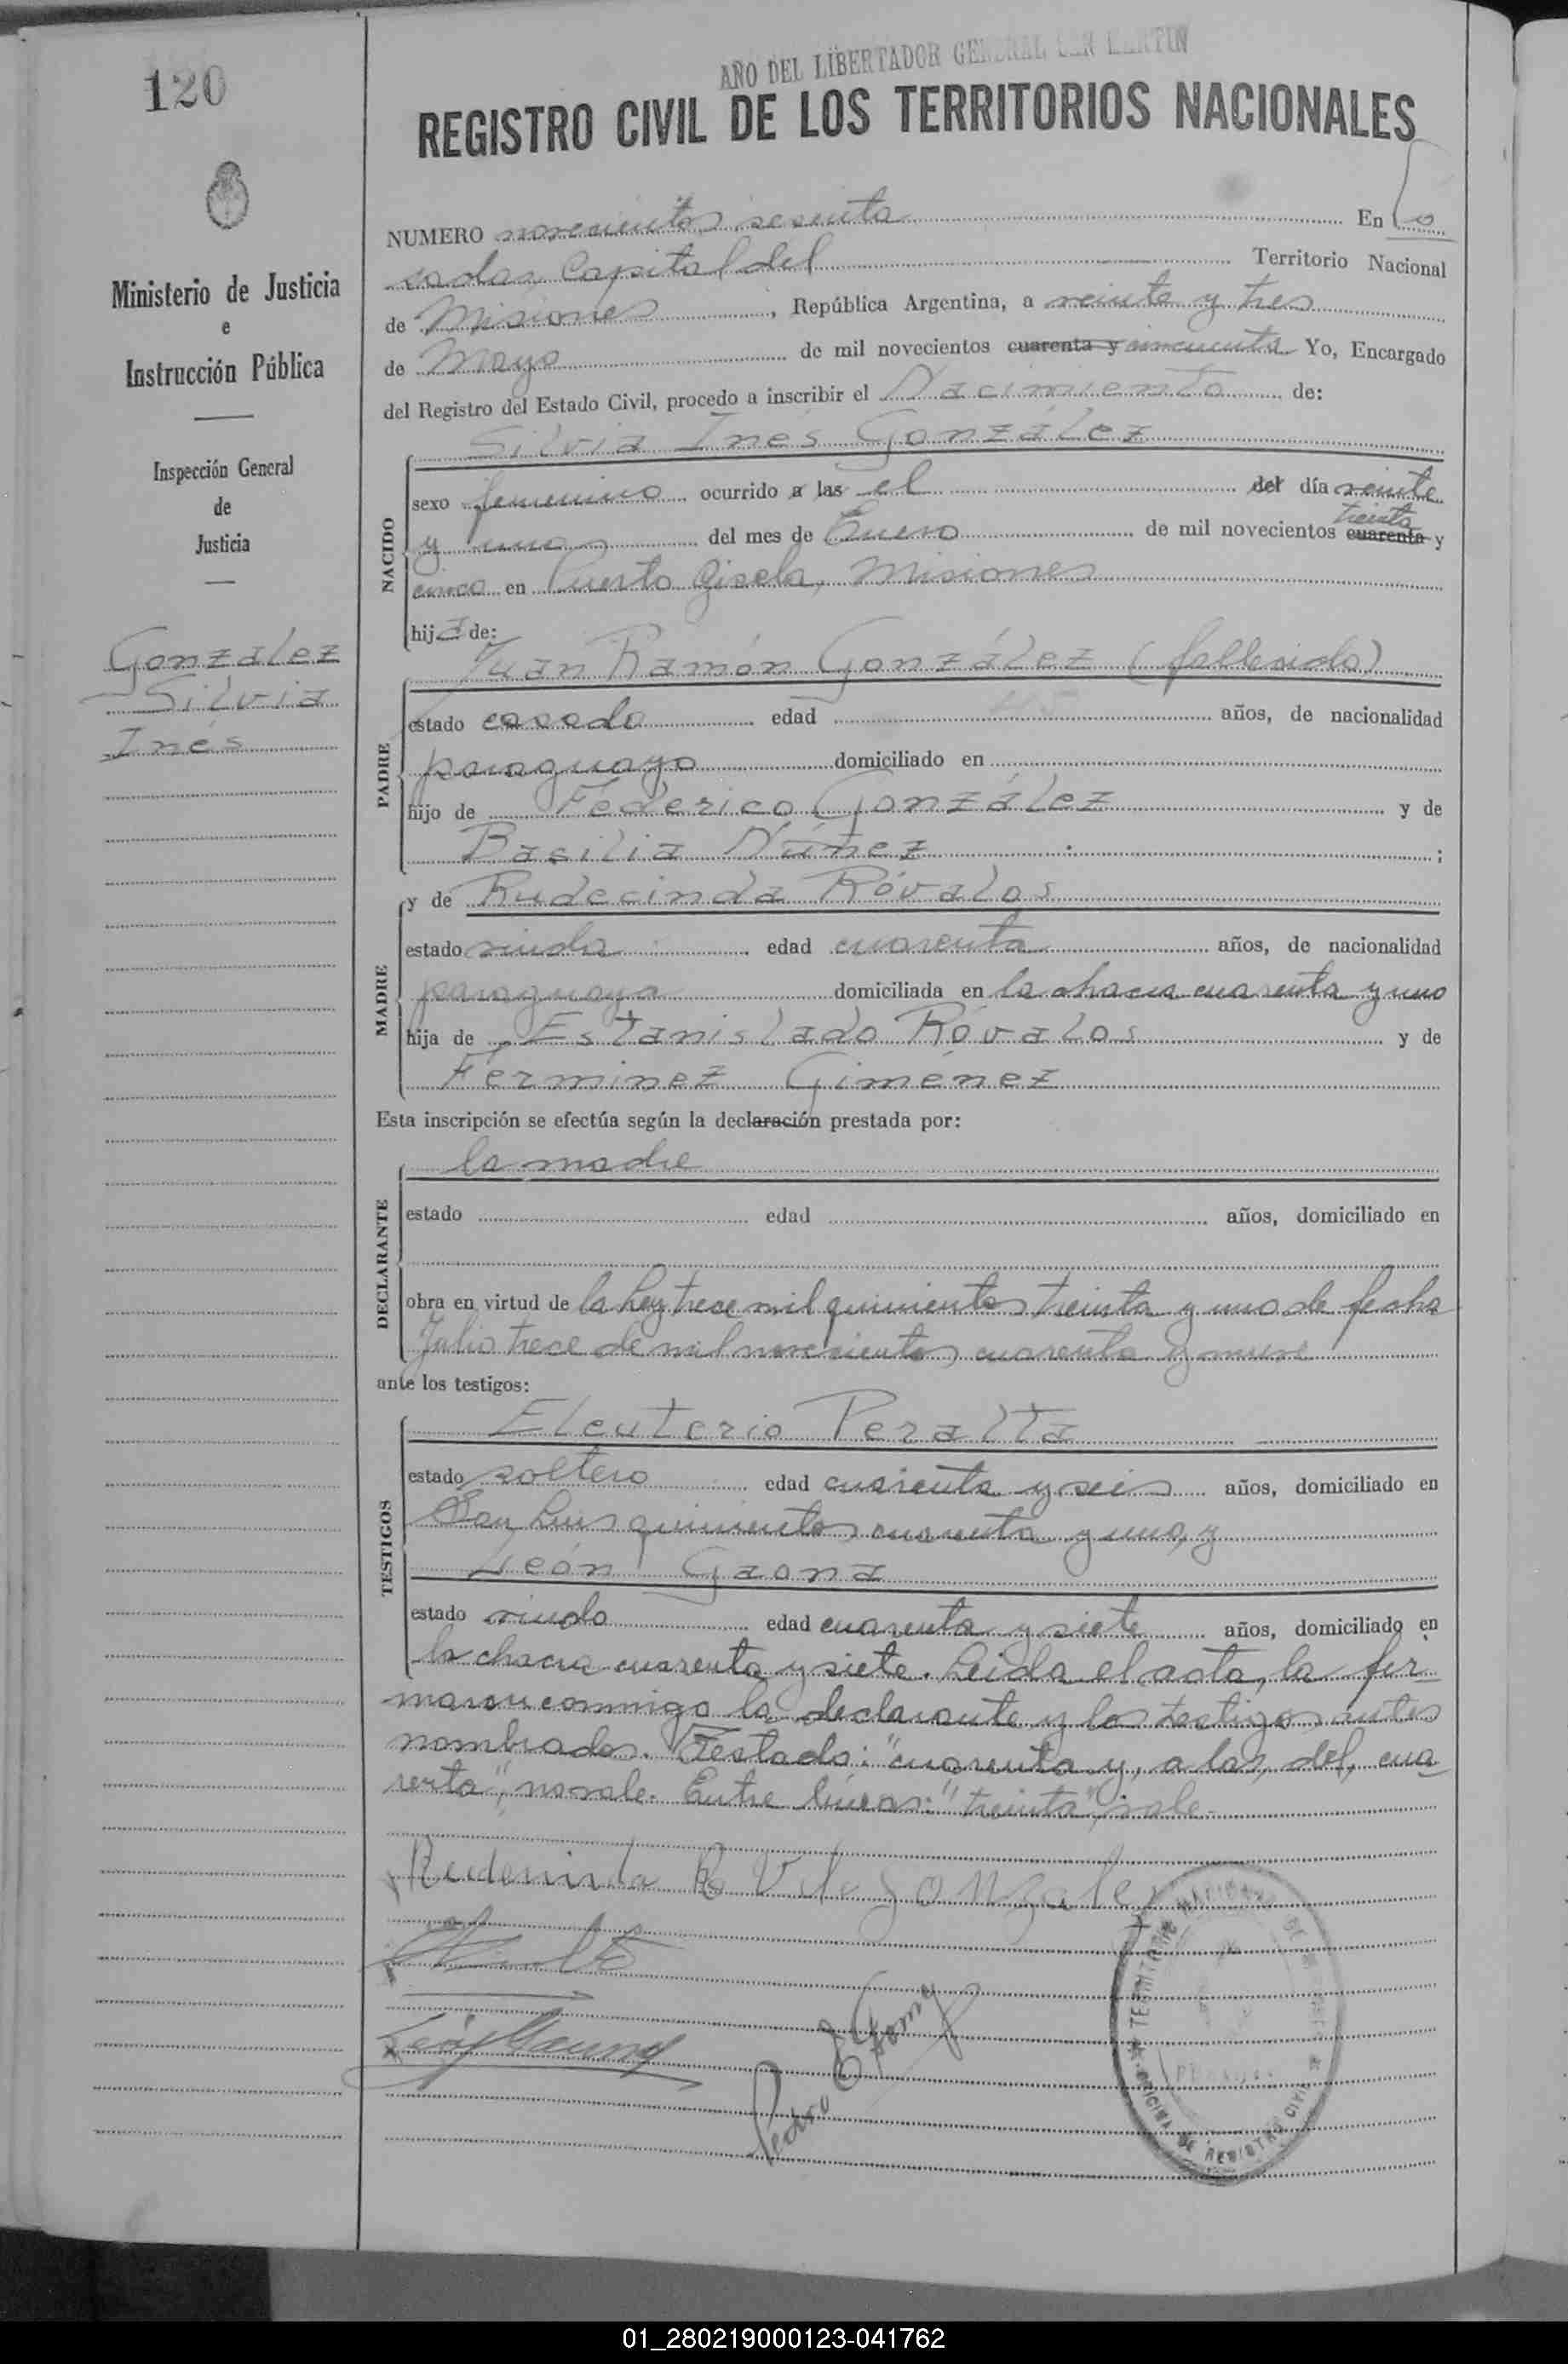 120
AÑO DEL LIBERTADOR GENERAL SAN MARTIN
REGISTRO CIVIL DE LOS TERRITORIOS NACIONALES
Ministerio de Justicia
e
Instrucción Pública
Inspección General
de
Justicia
González
Silvia
Inés
NUMERO novecientos sesenta En Po
sadas Capital del Territorio Nacional
de Misiones, República Argentina, a veinte y tres
de Mayo de mil novecientos cuarenta y cincuenta Yo, Encargado
del Registro del Estado Civil, procedo a inscribir el Nacimiento de:
Silvia Inés González
NACIDO
sexo femenino ocurrido a las el del día veinte
y uno del mes de Enero de mil novecientos treinta cuarenta y
cinco en Puerto Gisela, Misiones
hija de:
Juan Ramón González (fallecido)
PADRE
estado casado edad años, de nacionalidad
paraguayo domiciliado en
hijo de Federico González y de
Basilia Núñez ;
y de Rudecinda Róvalos
MADRE
estado viuda edad cuarenta años, de nacionalidad
paraguaya domiciliada en la chacra cuarenta y uno
hija de Estanislado Róvalos y de
Ferminez Giménez
Esta inscripción se efectúa según la declaración prestada por:
la madre
DECLARANTE
estado edad años, domiciliado en
obra en virtud de la Ley trece mil quinientos treinta y uno de fecha
Julio trece de mil novecientos cuarenta y nueve
ante los testigos:
Eleuterio Peralta
TESTIGOS
estado soltero edad cuarenta y seis años, domiciliado en
San Luis quinientos cuarenta y uno, y
León Gaona
estado viudo edad cuarenta y siete años, domiciliado en
la chacra cuarenta y siete. Leida el acta, la fir-
maron conmigo la declarante y los testigos antes
nombrados. Testado: "cuarenta y, a las, del, cua-
renta", no vale. Entre líneas: "treinta", vale.
Rudecinda R V de gonzalez
Pedro E Gomez
TERRITORIO NACIONAL DE MISIONES
OFICINA DE REGISTRO CIVIL
POSADAS
01_280219000123-041762